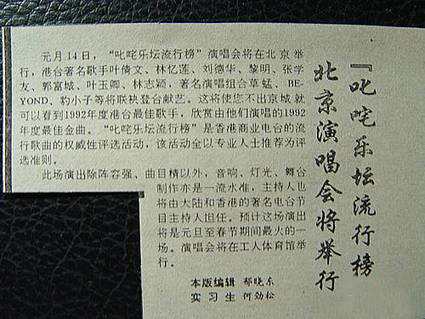 『叱咤乐坛流行榜
北京演唱会将举行
元月14日，“叱咤乐坛流行榜”演唱会将在北京举
行，港台著名歌手叶倩文、林忆莲、刘德华、黎明、张学
友、郭富城、叶玉卿、林志颖，著名演唱组合草蜢、BE-
YOND、豹小子等将联袂登台献艺。这将使您不出京城就
可以看到1992年度港台最佳歌手，欣赏由他们演唱的1992
年度最佳金曲。“叱咤乐坛流行榜”是香港商业电台的流
行歌曲的权威性评选活动，该活动全以专业人士推荐为评
选准则。
此场演出除阵容强、曲目精以外，音响、灯光、舞台
制作亦是一流水准，主持人也
将由大陆和香港的著名电台节
目主持人担任。预计这场演出
将是元旦至春节期间最火的一
场。演唱会将在工人体育馆举
行。
本版编辑 郗晓东
实习生 何劲松